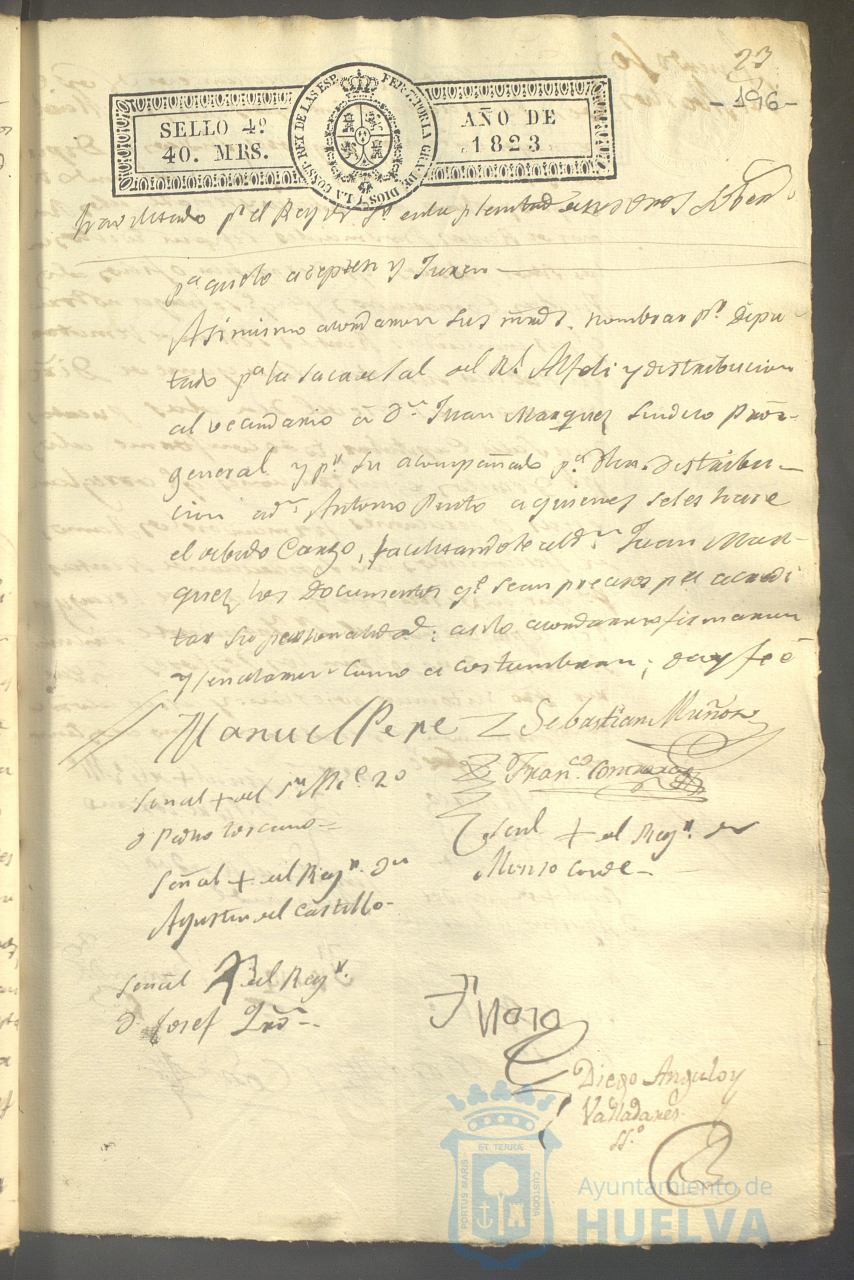 23
-196-
SELLO 4º
40. MRS.
FER. 7º POR LA GRA. DE DIOS Y LA CONST. REY DE LAS ESP.
AÑO DE
1823
havilitado pr el Rey
pa qe lo acepten y Juren
Asimismo acordaron sus mrds. nombrar pr Dipu
tado pa la saca de sal del Rl Alfoli y distribucion
al vecindario á Dn Juan Marquez Sindico Procr
general y pr su acompañado pa dha. distribu-
cion a dn Antonio Pinto a quienes se les hace
el devido Cargo, facilitandole al dn Juan Mar-
quez los Documentos qe sean precisos pa acredi
tar su personalidad; asi lo acordaron firmaron
y señalaron como acostumbran; doy feé
Manuel Pere
Sebastian Muñoz
Señal + del Sr 2º
Franco
D Pedro Toscano
Señal + del Regr Dn
Alonso Conde
Señal + del Regr Dn
Agustin del Castillo
Señal + del Regr
D Josef
Diego Angulo y
Valladares
SSº
PORTUS MARIS ET TERRÆ CUSTODIA
Ayuntamiento de
HUELVA